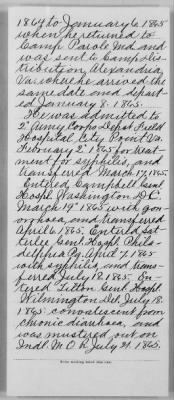 1864 to January 6, 1865
when he returned to
Camp Parole Md. and
was sent to Camp Dis-
tribution, Alexandria,
Va. where he arrived the
same date and depart-
ed January 8, 1865.
He was admitted to
2" Army Corps Depot Field
Hospital City Point Va.
February 2" 1865 for treat-
ment for syphilis, and
transferred March 17, 1865.
Entered Campbell Genl.
Hospl. Washington D.C.
March 19" 1865 with gon-
orrhoea, and transferred
April 6, 1865. Entered Sat-
terlee Genl. Hospl. Phila-
delphia Pa. April 7, 1865
with syphilis, and trans-
ferred July 18, 1865. En-
tered Tilton Genl. Hospl.
Wilmington Del. July 18,
1865 convalescent from
chronic diarrhoea, and
was mustered out on
Indl. M.O.R. July 21, 1865.